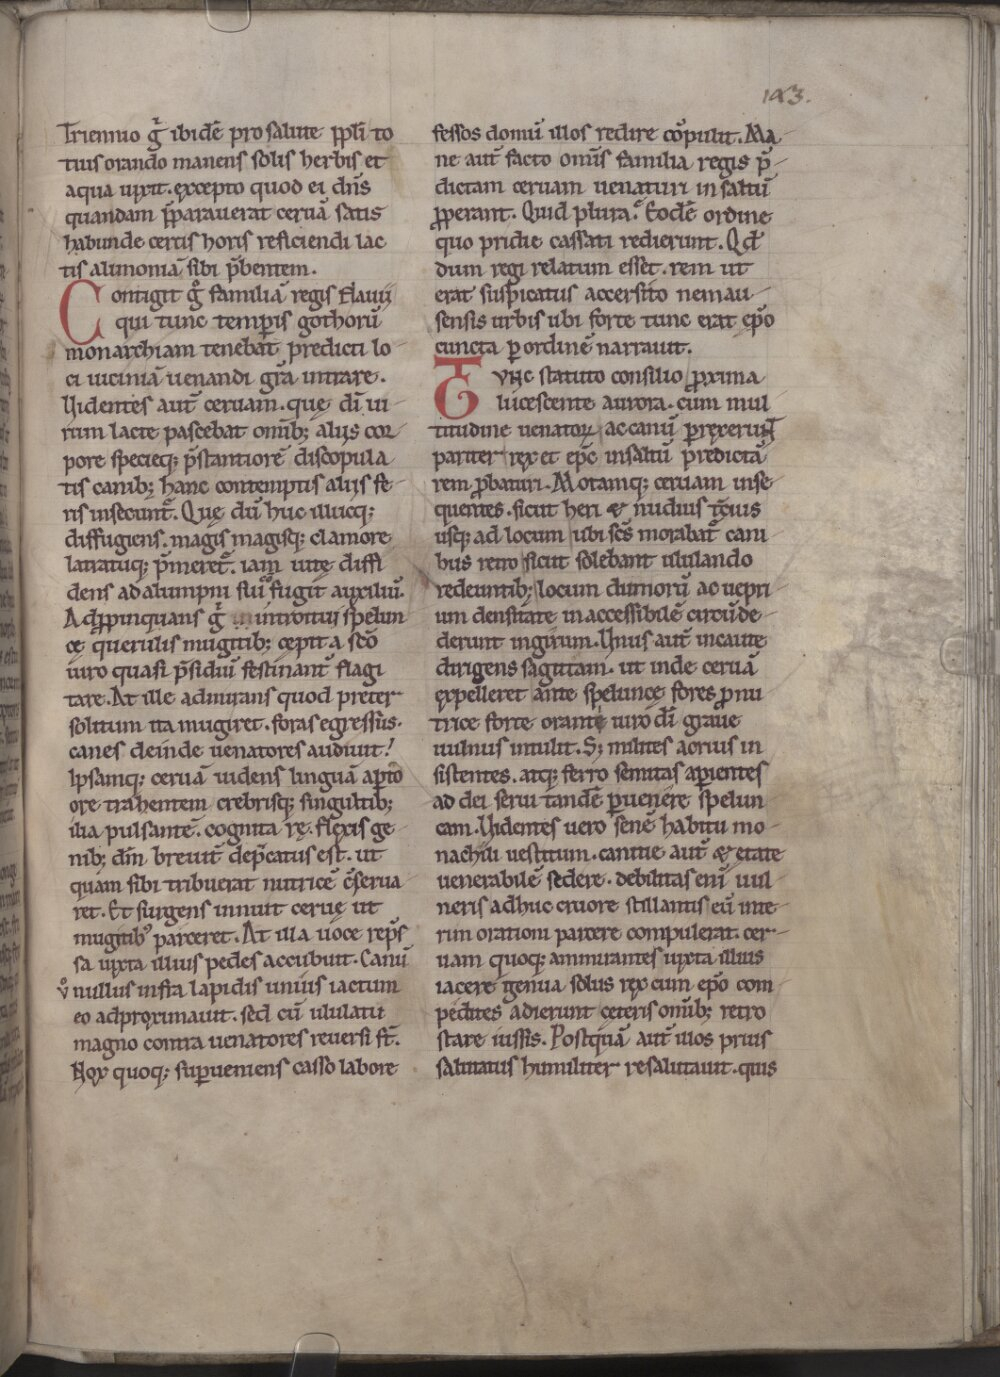 193.
Triennio g̃ ibidē pro salute ppl̃i to
tius orando manens solis herbis et
aqua uixit. excepto quod ei dn̄s
quandam p̄parauerat ceruā satis
habunde certis horis reficiendi lac
tis alimoniā sibi p̄bentem.
Contigit g̊ familiā regis flauii
qui tunc temp̄is gothorū
monarchiam tenebat predicti lo
ci uiciniā uenandi gr̄a intrare.
Uidentes aut̄ ceruam. quę dī ui
rum lacte pascebat om̄ib; alijs cor
pore specieq; p̄stantiorē discopula
tis canib; hanc contemptis alijs fe
ris insecunt̄. Quę dū huc illucq;
diffugiens. magis magisq; clamore
latratuq; p̄meret̄. iam uitę diffi
dens ad alumpni suū fugit auxiliū.
Adp̱pinquans g̃ introitui spelun
cę querulis mugitib; cepit a sc̄o
uiro quasi p̄sidiū festinant̄ flagi
tare. At ille admirans quod preter
solitum ita mugiret. foras egressus.
canes deinde uenatores audiuit!
Ipsamq; ceruā uidens linguā apto
ore trahentem crebrisq; singultib;
ilia pulsantē. cognita rę. flexis ge
nib; dn̄m breuit̄ dep̄catus est. ut
quam sibi tribuerat nutricē c̄serua
ret. Et surgens innuit ceruę ut
mugitib⁹ parceret. At illa uoce rep̄s
sa iuxta illius pedes accubuit. Canū
v̊ nullus infra lapidis unius iactum
eo adproximauit. sed cū ululatu
magno contra uenatores reuersi st̄.
Nox quoq; sup̱ueniens casso labore
fessos domū illos redire cōpulit. Ma
ne aut̄ facto om̄is familia regis p̄
dictam ceruam uenaturi in saltū
p̱perant. Quid plura? Eodē ordine
quo pridie cassati redierunt. Qđ
dum regi relatum esset. rem ut
erat suspicatus accersito nemau
sensis urbis ubi forte tunc erat ep̄o
cuncta p̱ ordinē narrauit.
Tvnc statuto consilio p̱xima
lucescente aurora. cum mul
titudine uenatoꝝ ac canū p̱rexerunt
pariter rex et ep̄c in saltū predictā
rem p̱baturi. Motamq; ceruam inse
quentes. sicut heri & nudius tc̄ius
usq; ad locum ubi sc̄s morabat̄ cani
bus retro sicut solebant ululando
redeuntib; locum dumorū ac uepri
um densitate inaccessibilē circūde
derunt in girum. Unus aut̄ incaute
dirigens sagittam. ut inde ceruā
expelleret ante speluncę fores p̱ nu
trice forte orante uiro dī graue
uulnus intulit. S; milites acrius in
sistentes. atq; ferro semitas ap̱ientes
ad dei serui tandē p̱uenere spelun
cam. Uidentes uero senē habitu mo
nachili uestitum. canitie aut̄ & etate
uenerabilē sedere. debilitas eni uul
neris adhuc cruore stillantis eū inte
rim orationi parcere compulerat. cer
uam quoq; ammirantes iuxta illius
iacere genua solus rex cum ep̄o com
pedites adierunt ceteris om̄ib; retro
stare iussis. Postquā aut̄ illos prius
salutatus humiliter resalutauit. quis